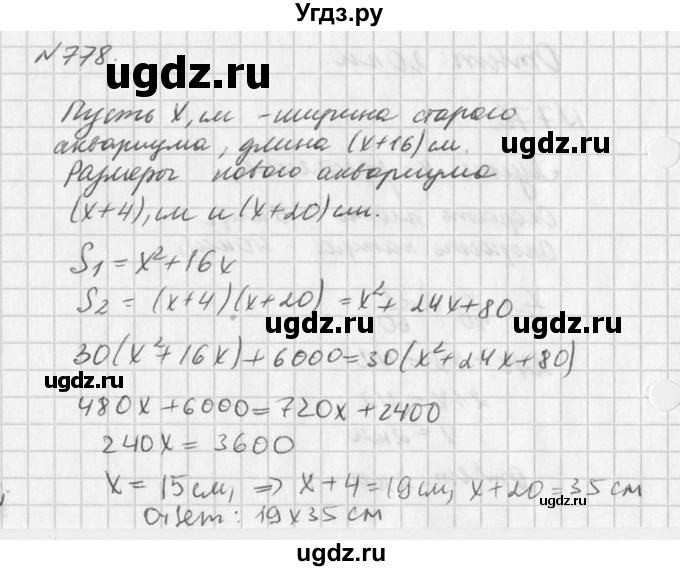 Угдз.ру
№778.
ugdz.ru
Пусть x, см - ширина старого
аквариума, длина (x+16) см.
ugdz.ru
Размеры нового аквариума
(x+4), см и (x+20) см.
ugdz.ru
S₁ = x²+16x
S₂ = (x+4)(x+20) = x²+24x+80
ugdz.ru
30(x²+16x)+6000=30(x²+24x+80)
ugdz.ru
480x+6000=720x+2400
240x = 3600
ugdz.ru
x = 15 см, ⇒ x+4=19 см, x+20=35 см
Ответ: 19x35 см
ugdz.ru
ugdz.ru